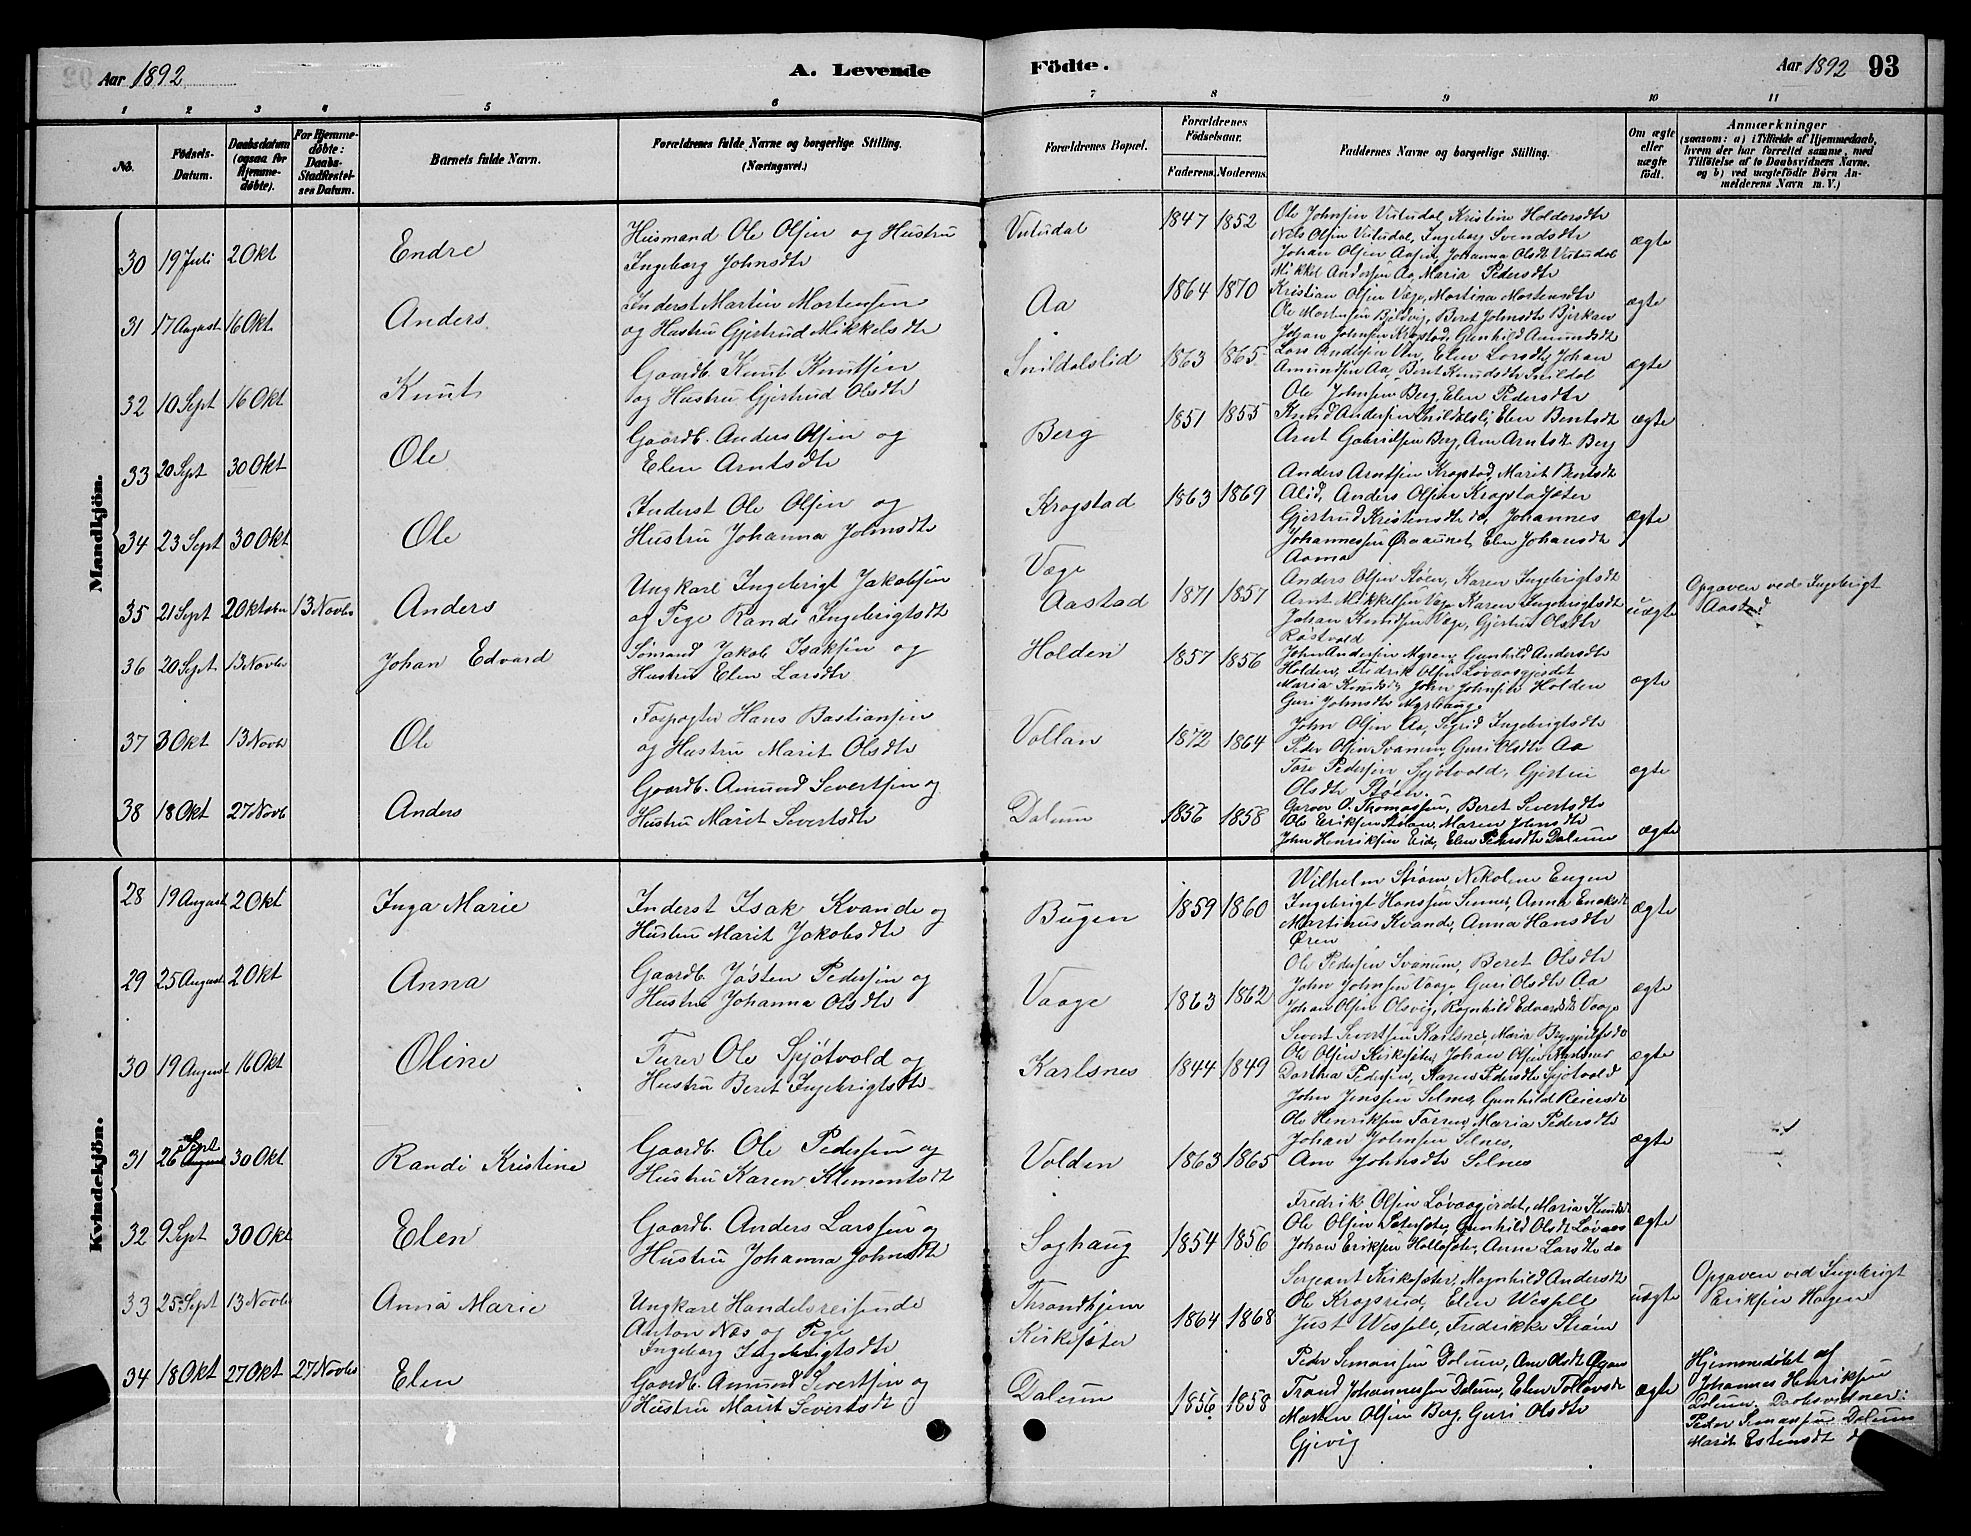 Aar 1892 A. Levende Födte. Aar 1892 93
1 2 3 4 5 6 7 8 9 10 11
No. Födsels-Datum. Daabsdatum (ogsaa for Hjemmedöbte). For Hjemmedøbte: Daabs-Stadfæstelses Datum. Barnets fulde Navn. Forældrenes fulde Navne og borgerlige Stilling. (Næringsvei.) Forældrenes Bopæl. Forældrenes Födselsaar. Faderens. Moderens. Faddernes Navne og borgerlige Stilling. Om ægte eller uægte födt. Anmærkninger (saasom: a) i Tilfælde af Hjemmedaab, hvem der har forrettet samme, med Tilföielse af to Daabsvidners Navne. og b) ved uægtefödte Börn Anmelderens Navn m. V.)
Mandkjön.
30 19 Juli 2 Okt Endre
Husmand Ole Olsen og Hustru
Ingeborg Johnsdtr
1847 1852
Ole Johnsen Vutudal, Kristine Holdersdtr
Nils Olsen Vutudal, Ingeborg Svendsdtr
ægte
31 17 August 16 Okt Anders
Inderst Martin Mortensen
og Hustru Gjertrud Mikkelsdtr
Aa 1864 1870
Mikkel Andersen Aa, Maria Pedersdtr
Kristian Olsen Vage, Mostina Mortensdtr
ægte
32 10 Sept 16 Okt Knut
Gaardb. Knut Knutsen
og Hustru Gjertrud Olsdtr
Snildalslid 1863 1865
Johan Johnsen Krogstad, Gunhild Amundsdtr
Lars Andersen Ven, Elen Larsdtr, Johan
Amundsen Aa, Beret Knudsdtr Snildal
ægte
33 20 Sept 30 Okt Ole
Gaardb. Anders Olsen og
Elen Arntsdtr
Berg 1851 1855
Ole Johnsen Berg, Elen Pedersdtr
Knud Andersen Snildalsli, Elen Bentsdtr
Arnt Gabrielsen Berg, Ane Arntsdt Berg
ægte
34 23 Sept 30 Okt Ole
Inderst Ole Olsen og
Hustru Johanna Johnsdtr
Krogstad 1863 1869
Anders Arntsen Krogstad, Marit Bentsdtr
Alid, Anders Olsen Krogstadsæter
Gjertrud Kristensdtr do, Johannes
Johannessen Øraunet, Elen Johansdtr
Aarna
ægte
35 21 Sept 2 Oktober 13 Novbr Anders
Ungkarl Ingebrigt Jakobsen
og Pige Randi Ingebrigtsdtr
Væge
Aastad 1871 1857
Anders Olsen Støen, Karen Ingebrigtsdtr
Arnt Mikkelsen Væge Karen Ingebrigtsdtr
Johan Knudsen Væge, Gjertru Olsdtr
Røstvold
uægte
Opgaven ved Ingebrigt
Aastad
36 20 Sept 13 Novbr Johan Edvard
Sömand Jakob Isaksen og
Hustru Elen Larsdtr
Holden 1857 1856
John Andersen Myren, Gunhild Andersdtr
Holden, Fredrik Olsen Løvaasgjerdet
Maria Knudsdtr, John Johnsen Holden
Guri Johnsdtr Myrhaug
ægte
37 3 Okt 13 Novbr Ole
Forpagter Hans Bastiansen
og Hustru Marit Olsdtr
Vollan 1872 1864
John Olsen Aa, Sigrid Ingebrigtsdtr
Peder Olsen Svanem, Guri Olsdtr Aa
Tore Pedersen Sjøtvold, Gjertru
Olsdtr Støen.
ægte
38 18 Okt 27 Novb Anders
Gaardb. Amund Sivertsen og
Hustru Marit Sivertsdtr
Dalum 1856 1858
Garver O. Thomassen, Beret Sivertsdtr
Ole Eriksen Stolan, Maren Johnsdtr
John Henriksen Eid, Elen Pedersdtr Dalum
ægte
Kvindekjön.
28 19 August 2 Okt Inga Marie
Inderst Isak Kvande og
Hustru Marit Jakobsdtr
Bugen 1859 1860
Wilhelm Strøm, Nikoline Eugen
Ingebrigt Hansen Sennes, Anna Enoksdtr
Martinus Kvande, Anna Hansdtr
Øren
ægte
29 25 August 2 Okt Anna
Gaardb. Jøsten Pedersen og
Hustru Johanna Olsdtr
Vaage 1863 1862
Ole Pedersen Svanum, Beret Olsdtr
John Johnsen Vaage, Guri Olsdtr Aa
Johan Olsen Olsvig, Ragnhild Edvardsdt Vaage
ægte
30 19 August 16 Okt Oline
Furer Ole Sjøtvold og
Hustru Beret Ingebrigtsdtr
Karlsnes 1844 1849
Ole Olsen Kirksæter, Johan Olsen
Dorthea Pedersen, Karen Pedersdtr Sjøtvold
ægte
31 26 Sept 30 Okt Randi Kristine
Gaardb. Ole Pedersen og
Hustru Karen Klementsdt
Volden 1863 1865
John Jensen Selnes, Gunhild Reiersdt
Ole Henriksen Farren, Maria Pedersdtr
Johan Johnsen Selnes,
Ane Johnsdtr Selnes
ægte
32 9 Sept 30 Okt Elen
Gaardb. Anders Larssen og
Hustru Johanna Johnsdtr
Soghaug 1854 1856
Fredrik Olsen Løvaasgjerdet, Maria Knudsdt
Ole Olsen Sætersæter, Gunhild Olsdt Løvaas
Johan Eriksen Hollasæter, Anne Larsdtr do
ægte
33 25 Sept 13 Novbr Anna Marie
Ungkarl Handelsreisende
Anton Næs og Pige
Ingeborg Ingebrigtsdtr
Throndhjem
Kirksæter 1864 1868
Sergeant Kirksæter, Magnhild Andersdt
Ole Krogsred, Elen Wessel
Just Wessel, Fredrikke Strøm
uægte
Opgaven ved Ingebrigt
Eriksen Hagen
34 18 Okt 27 Okt 27 Novbr Elen
Gaardb. Amund Sivertsen og
Hustru Marit Sivertsdt
Dalum 1856 1858
Peder Simonsen Dalum, Ane Olsdt Øyan
Trond Johannessen Dalum, Elen Tollevsdt
Morten Olsen Berg, Guri Olsdtr
Gjevig
ægte
Hjemmedøbt af
Johannes Henriksen
Dalum. Daabsvidner:
Peder Simonsen Dalum
Marit Estensdt do